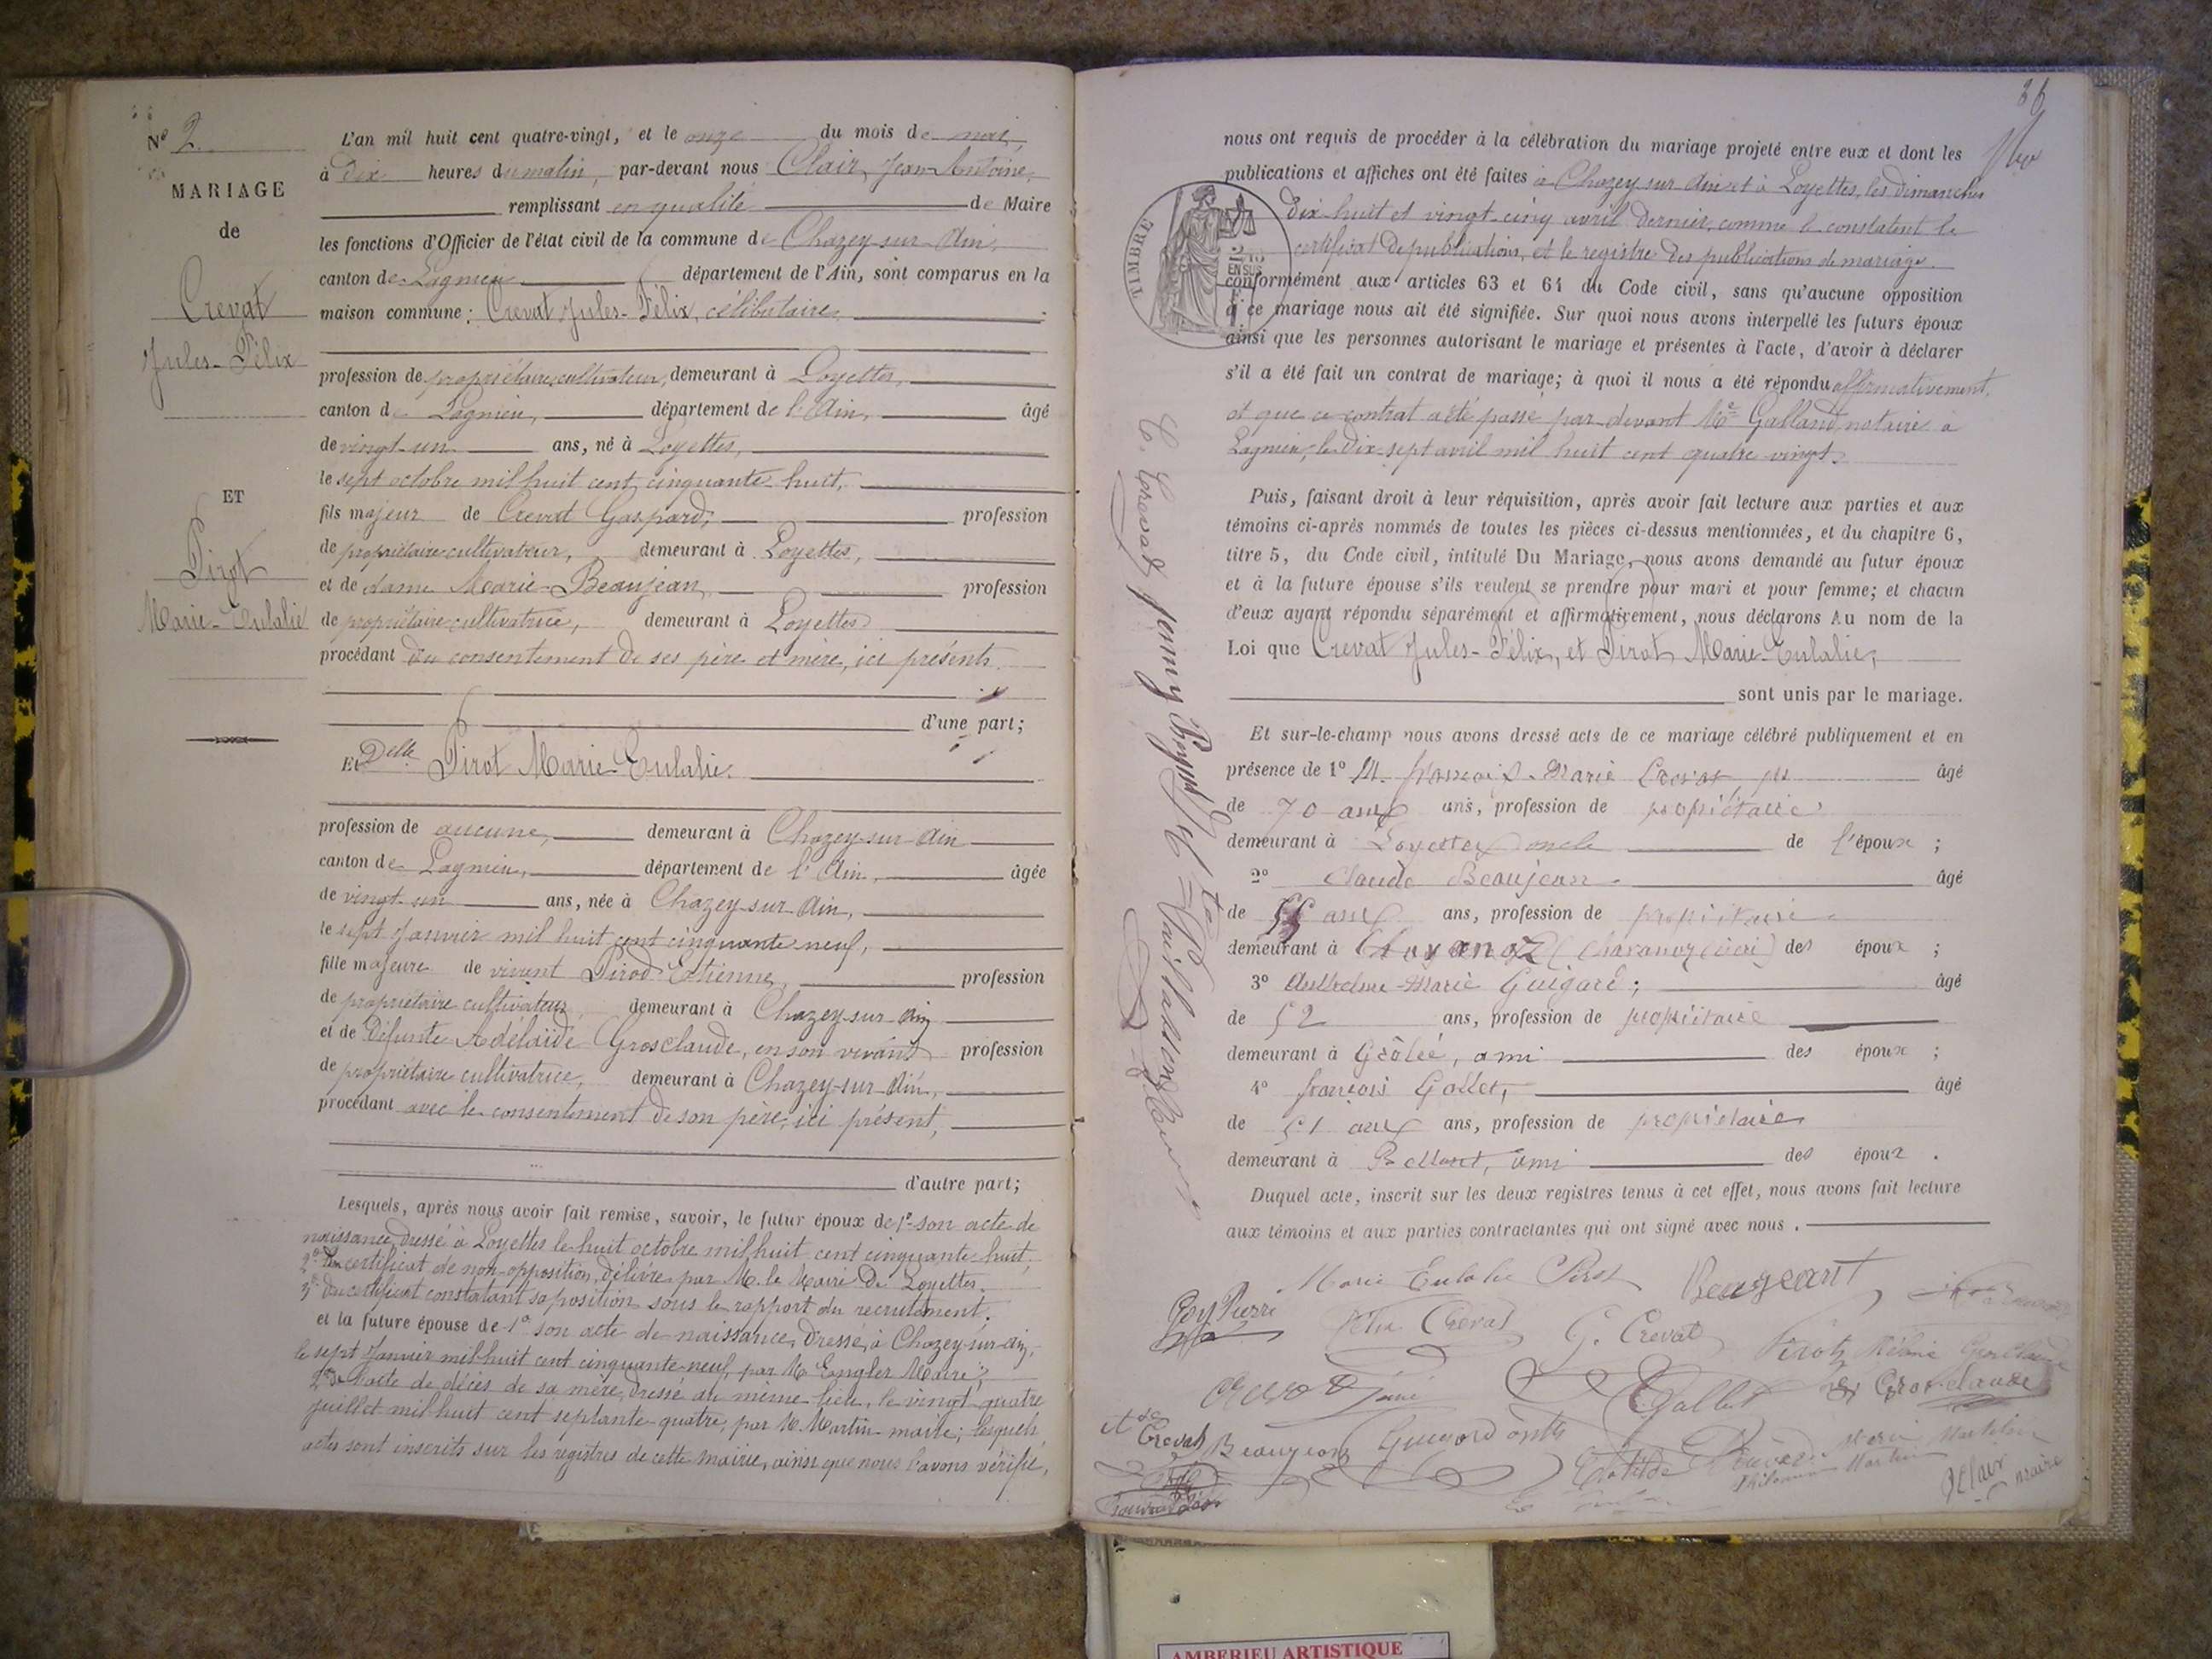 Nº 2.
MARIAGE
de
Crevat
Jules-Félix
ET
Pirot
Marie-Eulalie
L'an mil huit cent quatre-vingt, et le onze du mois de mai,
à dix heures du matin, par-devant nous Clair, Jean Antoine,
remplissant en qualité de Maire
les fonctions d'Officier de l'état civil de la commune de Chazey-sur-Ain,
canton de Lagnieu département de l'Ain, sont comparus en la
maison commune: Crevat Jules-Félix, célibataire,
profession de propriétaire cultivateur, demeurant à Loyettes,
canton de Lagnieu, département de l'Ain, âgé
de vingt-un ans, né à Loyettes,
le sept octobre mil huit cent cinquante-huit,
fils majeur de Crevat Gaspard, profession
de propriétaire cultivateur, demeurant à Loyettes,
et de dame Marie-Beaujean, profession
de propriétaire cultivatrice, demeurant à Loyettes
procédant du consentement de ses père et mère, ici présents.
d'une part;
Et Delle Pirot Marie-Eulalie.
profession de aucune, demeurant à Chazey-sur-Ain
canton de Lagnieu, département de l'Ain, âgée
de vingt-un ans, née à Chazey-sur-Ain,
le sept Janvier mil huit cent cinquante neuf,
fille majeure de vivant Pirod Etienne, profession
de propriétaire cultivateur, demeurant à Chazey-sur-Ain
et de défunte Adélaïde Grosclaude, en son vivant profession
de propriétaire cultivatrice, demeurant à Chazey-sur-Ain,
procédant avec le consentement de son père, ici présent,
d'autre part;
Lesquels, après nous avoir fait remise, savoir, le futur époux de 1º son acte de
naissance, dressé à Loyettes le huit octobre mil huit cent cinquante-huit,
2º Du certificat de non-opposition, délivré par M. le Maire de Loyettes.
3º Du certificat constatant sa position sous le rapport du recrutement.
et la future épouse de 1º son acte de naissance, dressé à Chazey-sur-Ain,
le sept Janvier mil huit cent cinquante-neuf, par M. Engler Maire;
2º de l'acte de décès de sa mère, dressé au même lieu, le vingt-quatre
juillet mil huit cent septante-quatre, par M. Martin-maire; lesquels
actes sont inscrits sur les registres de cette mairie, ainsi que nous l'avons vérifié,
36
nous ont requis de procéder à la célébration du mariage projeté entre eux et dont les
publications et affiches ont été faites à Chazey-sur-Ain et à Loyettes, les dimanches
dix-huit et vingt-cinq avril dernier, comme le constatent le
certificat de publications, et le registre des publications de mariage.
TIMBRE
EN SUS
conformément aux articles 63 et 64 du Code civil, sans qu'aucune opposition
à ce mariage nous ait été signifiée. Sur quoi nous avons interpellé les futurs époux
ainsi que les personnes autorisant le mariage et présentes à l'acte, d'avoir à déclarer
s'il a été fait un contrat de mariage; à quoi il nous a été répondu affirmativement,
et que ce contrat a été passé par devant Me Galland, notaire à
Lagnieu, le dix-sept avril mil huit cent quatre-vingt.
Puis, faisant droit à leur réquisition, après avoir fait lecture aux parties et aux
témoins ci-après nommés de toutes les pièces ci-dessus mentionnées, et du chapitre 6,
titre 5, du Code civil, intitulé Du Mariage, nous avons demandé au futur époux
et à la future épouse s'ils veulent se prendre pour mari et pour femme; et chacun
d'eux ayant répondu séparément et affirmativement, nous déclarons Au nom de la
Loi que Crevat Jules-Félix, et Pirot Marie-Eulalie,
sont unis par le mariage.
Et sur-le-champ nous avons dressé acte de ce mariage célébré publiquement et en
présence de 1º M. françois-Marie Crevat, âgé
de 70 ans ans, profession de propriétaire
demeurant à Loyettes oncle de l'époux;
2º Claude Beaujean âgé
de ans ans, profession de propriétaire
demeurant à Chavanoz (Chavanoz Isère) des époux;
3º Anthelme-Marie Guigard; âgé
de 52 ans, profession de propriétaire
demeurant à ami des époux;
4º françois Gallet, âgé
de 51 ans ans, profession de propriétaire
demeurant à ami des époux.
Duquel acte, inscrit sur les deux registres tenus à cet effet, nous avons fait lecture
aux témoins et aux parties contractantes qui ont signé avec nous.
C. Crevat
Marie Eulalie Pirot
Beaujeant
Pey Pierre
Félix Crevat
G. Crevat
Pirot
Mélanie Grosclaude
Crevat
Gallet
Grosclaude
Crevat
Beaujean
Clotilde
Marie
Philomène Martin
J Clair maire
AMBERIEU ARTISTIQUE